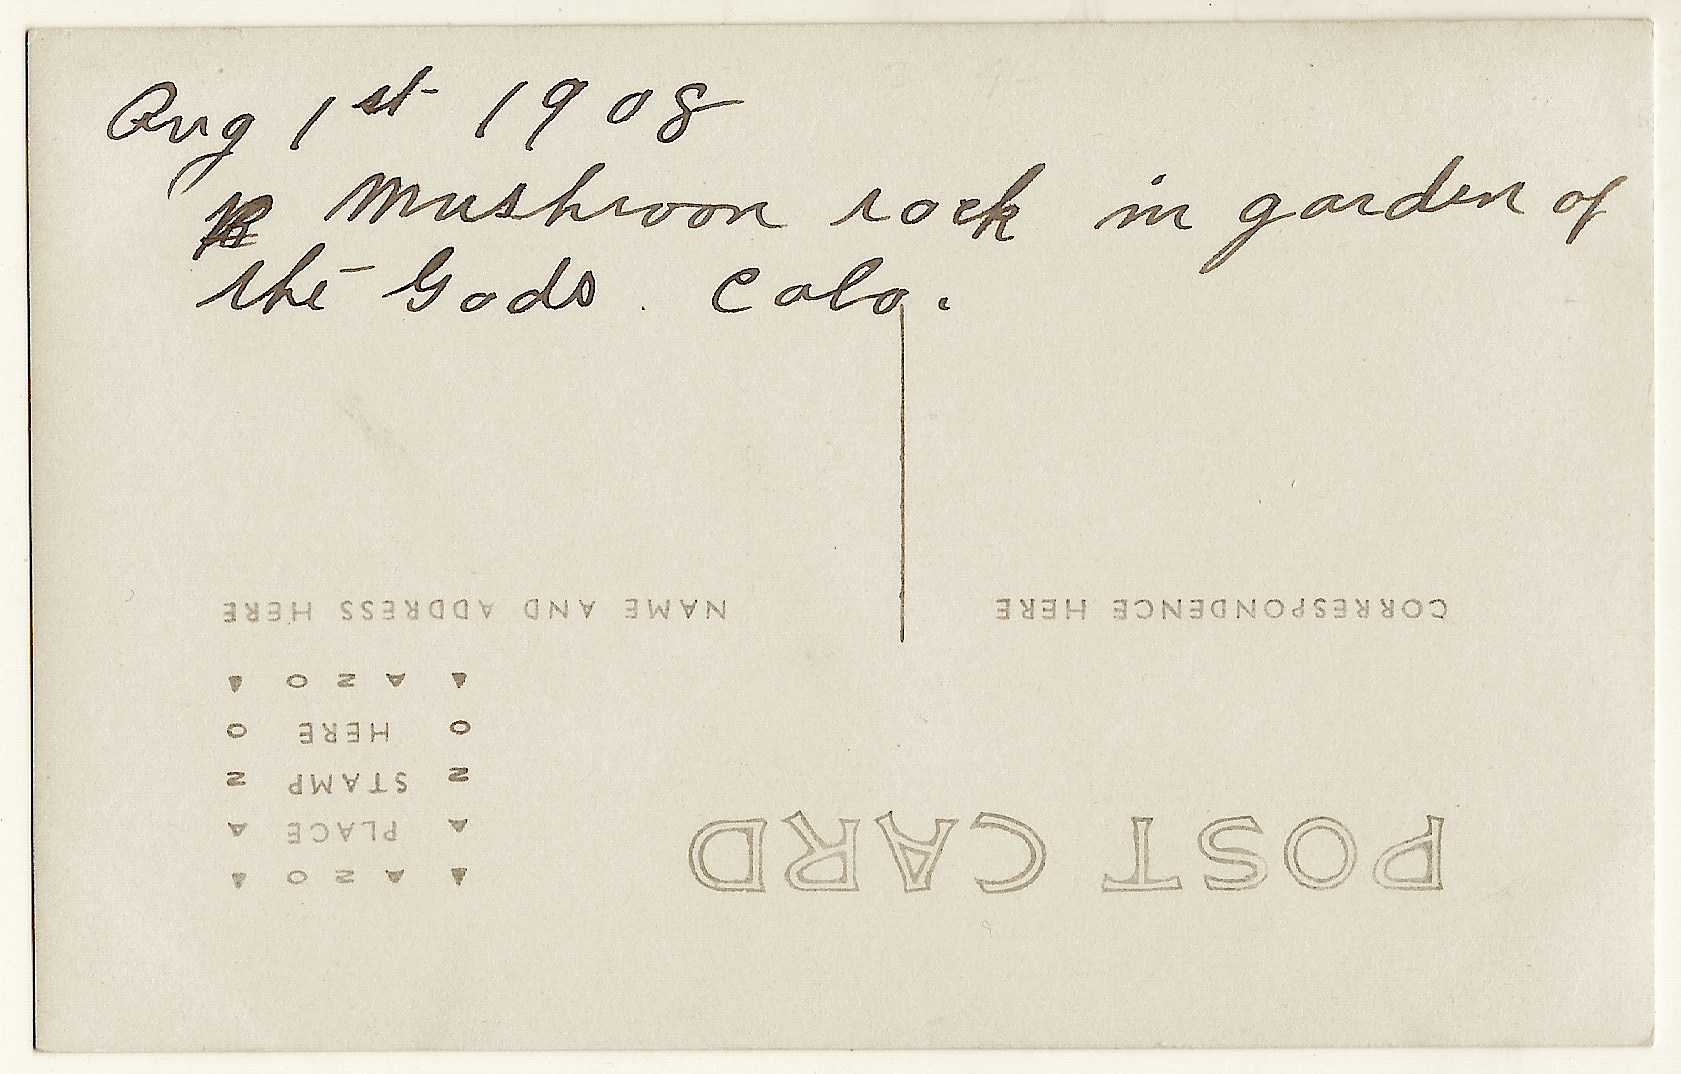 Aug 1st 1908
Mushroon rock in garden of
the Gods. Colo.
POST CARD
AZO
A PLACE A
Z STAMP Z
O HERE O
AZO
CORRESPONDENCE HERE
NAME AND ADDRESS HERE